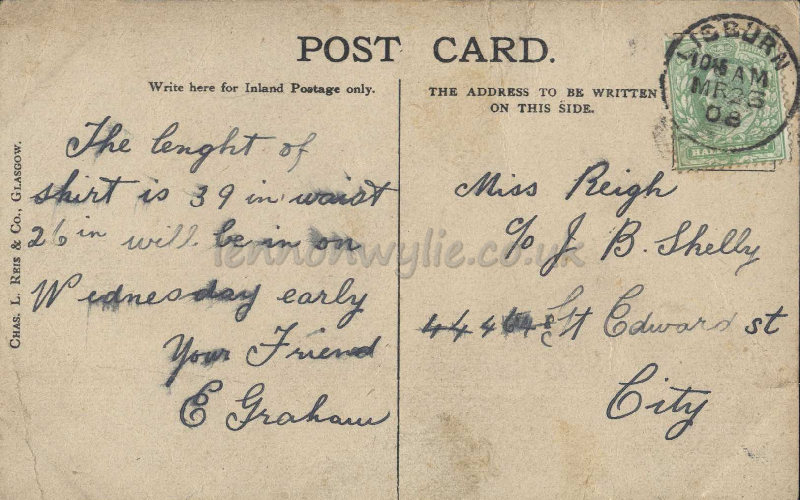 POST CARD.
Write here for Inland Postage only.
THE ADDRESS TO BE WRITTEN
ON THIS SIDE.
LISBURN
AM
MR 23
08
CHAS. L. REIS & CO., GLASGOW.
The lenght of
skirt is 39 in waist
26 in will be in on
Wednesday early
Your Friend
E Graham
Miss Reigh
c/o J. B. Shelly
44 46 48 Edward st
City
lennonwylie.co.uk